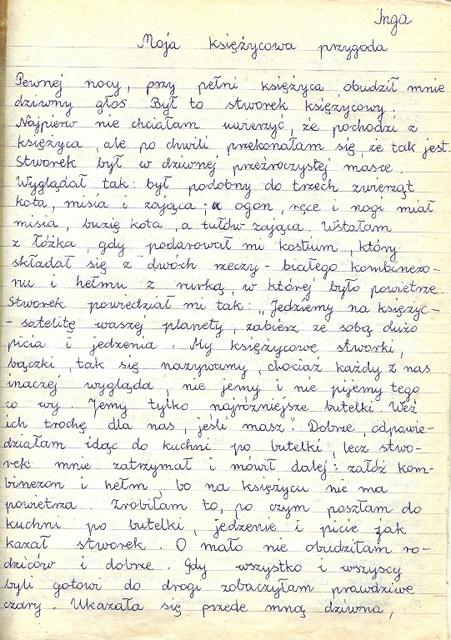 Inga
Moja księżycowa przygoda
Pewnej nocy, przy pełni księżyca obudził mnie
dziwny głos. Był to stworek księżycowy.
Najpierw nie chciałam uwierzyć, że pochodzi z
księżyca, ale po chwili przekonałam się, że tak jest.
Stworek był w dziwnej przeźroczystej masce.
Wyglądał tak: był podobny do trzech zwierząt
kota, misia i zająca; a ogon, ręce i nogi miał
misia, buzię kota, a tułów zająca. Wstałam
z łóżka, gdy podarował mi kostium, który
składał się z dwóch rzeczy - białego kombinezo-
nu i hełmu z rurką, w której było powietrze
Stworek powiedział mi tak: „Jedziemy na księżyc-
- satelitę waszej planety, zabierz ze sobą dużo
picia i jedzenia. My księżycowe stworki,
bączki, tak się nazywamy, chociaż każdy z nas
inaczej wygląda, nie jemy i nie pijemy tego
co wy. Jemy tylko najróżniejsze butelki. Weź
ich trochę dla nas, jeśli masz. Dobrze, odpowie-
działam idąc do kuchni po butelki, lecz stwo-
rek mnie zatrzymał i mówił dalej: załóż kom-
binezon i hełm, bo na księżycu nie ma
powietrza. Zrobiłam to, po czym poszłam do
kuchni po butelki, jedzenie i picie jak
kazał stworek. O mało nie obudziłam ro-
dziców i dobrze. Gdy wszystko i wszyscy
byli gotowi do drogi zobaczyłam prawdziwe
czary. Ukazała się przede mną dziwna,